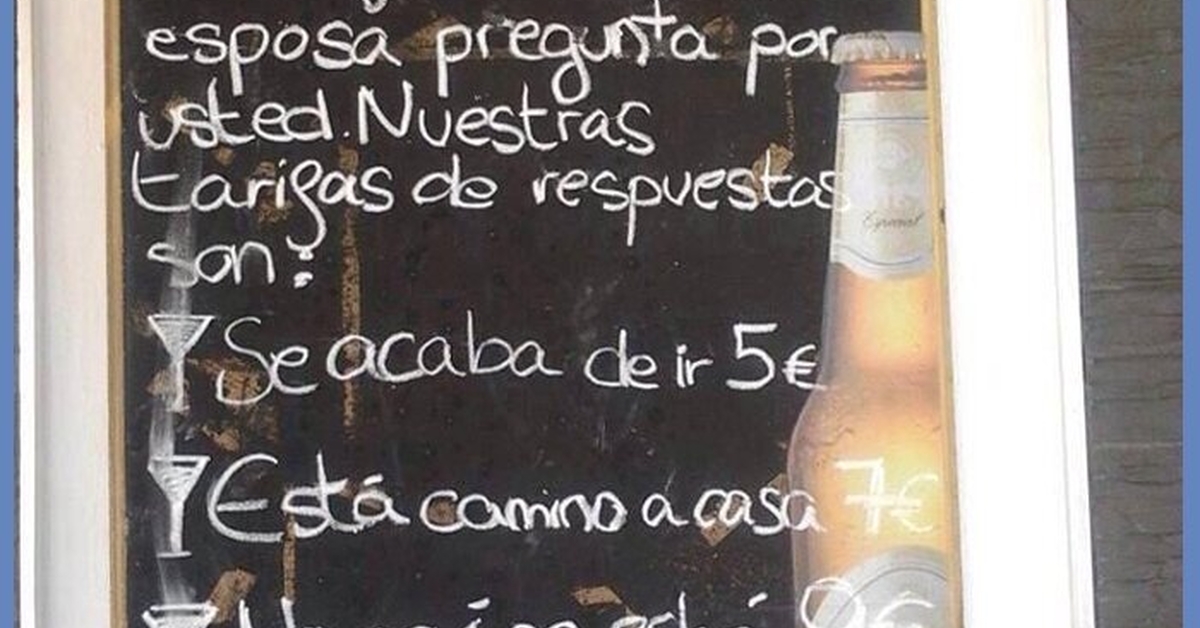 esposa pregunta por
usted. Nuestras
tarifas de respuestas
son:
Se acaba de ir 5€
Está camino a casa 7€